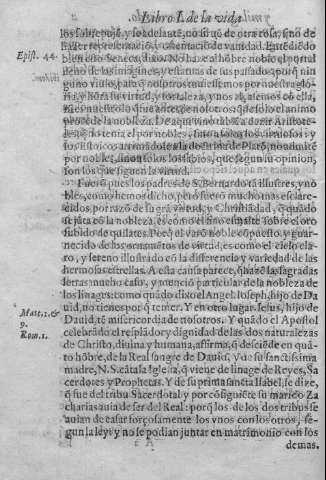 Libro I. de la vida
los sobrepuje, y se delante, no se q̃ de otra cosa, sino de
hazer representació, y ostentació de vanidad. Entédiólo
Epist. 44. bien esto Seneca, dizédo. No haze al hõbre noble el portal
lleno de las imagines, y estatuas de sus passados: porq̃ nin
guno viuio, para q̃ nosotros nos
y hõra su virtud, y fortaleza, y nos
es nuestro lo que antes de nosotros el animo
de la nobleza. De aqui vino a dezir Aristote
les tenia el por nobles, sino a solos los virtuosos: y
los de Platõ, no admite
por nobles, sino a solos los sabios, que segun su opinion,
son los que siguen la virtud.
Fuerõ pues los padres de S. Bernardo tã illustres, y no
bles, como hemos dicho, pero fuerõ mucho mas esclare-
cidos, por razõ de su grã virtud, y Christiãdad, q̃ quãdo
se jũta cõ la nobleza, es como el fino esmalte sobre el oro
subido de quilates. Porq̃ el varõ noble cõpuesto, y guar
necido de los ornamẽtos de virtud, es como el cielo cla-
ro, y sereno illustrado cõ la differencia y variedad de las
hermosas estrellas. A esta causa parece, q̃ hazẽ las sagradas
letras mucho caso, y menció particular de la nobleza de
los linages: como quãdo dixo el Angel. Ioseph, hijo de Da
Matt. 1. & uid, no tienes por q̃ temer. Y en otro lugar. Iesus, hijo de
9. Dauid, tẽ misericordia de nosotros. Y quãdo el Apostol
Rom. 1. celebrãdo el resplãdor y dignidad de las dos naturalezas
de Christo, diuina y humana, affirma, q̃ desciẽde en quã-
to hõbre, de la Real sangre de Dauid. Y de su sanctissima
madre, N. S. cãta la Iglesia, q̃ viene de linage de Reyes, Sa
cerdotes y Prophetas. Y de su prima sancta Isabel, se dize,
q̃ fue del tribu Sacerdotal y por cõsiguiẽte su marido Za
charias auia de ser del Real: porq̃ los de los dos tribus se
auian de casar forçosamente los vnos con los otros, se-
gun la ley: y no se podian juntar en matrimonio con los
demas.